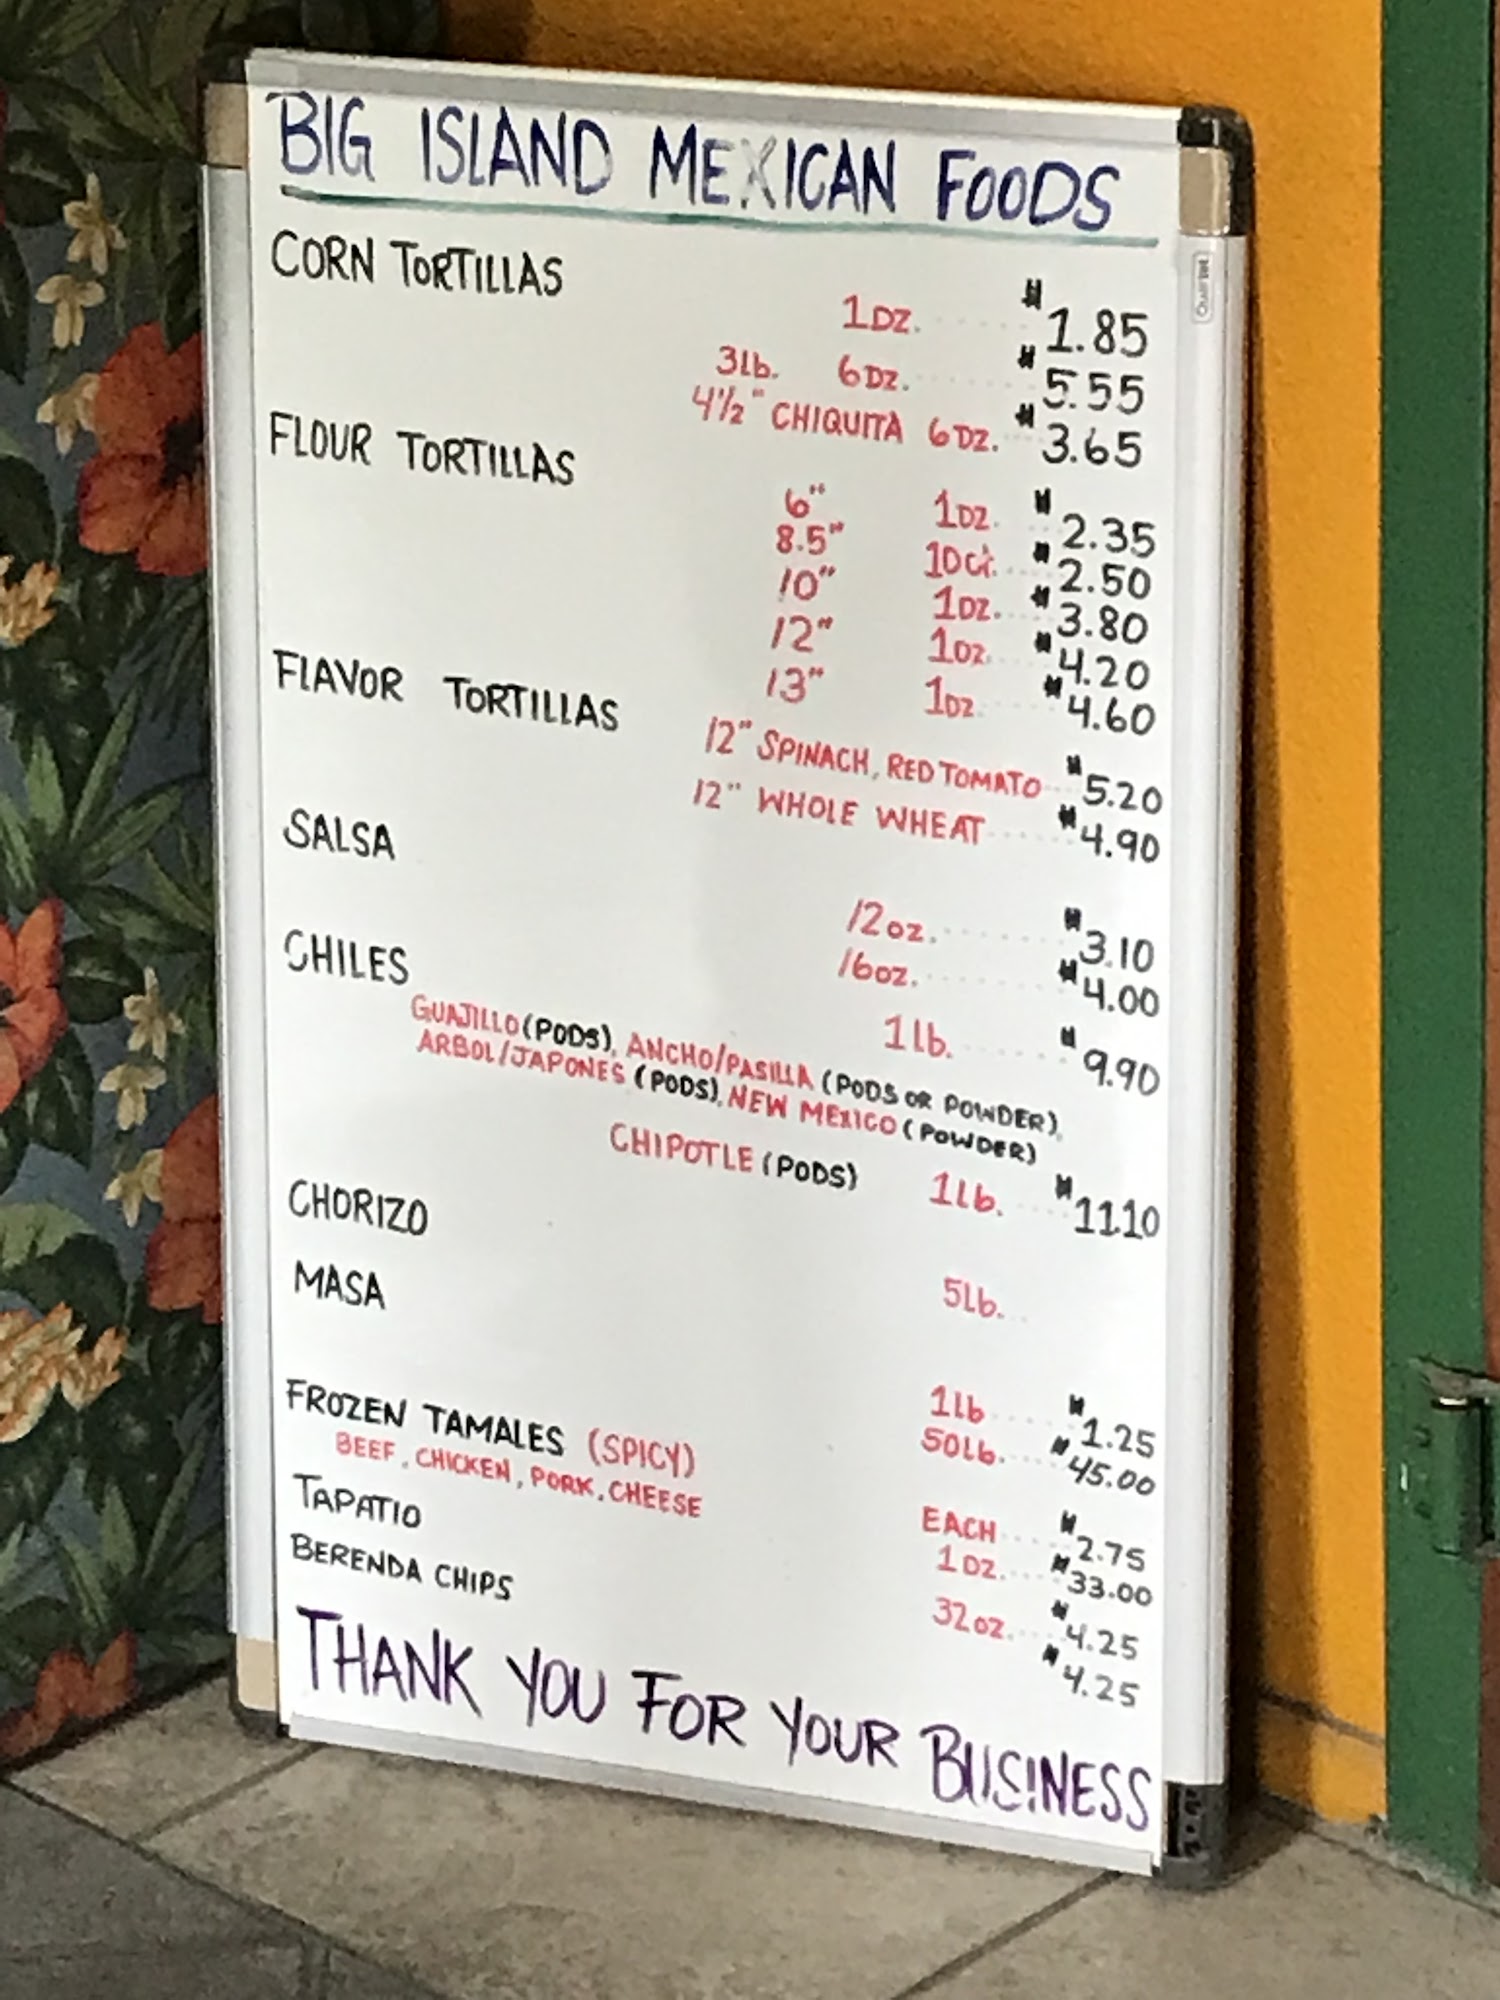 BIG ISLAND MEXICAN FOODS
Quartet
CORN TORTILLAS
1 DZ. ...... $1.85
3lb. 6 DZ. ...... $5.55
4½" CHIQUITA 6 DZ. ... $3.65
FLOUR TORTILLAS
6" 1 DZ. $2.35
8.5" 10 ct. ... $2.50
10" 1 DZ. ... $3.80
12" 1 DZ. ... $4.20
13" 1 DZ. ... $4.60
FLAVOR TORTILLAS
12" SPINACH, RED TOMATO ... $5.20
12" WHOLE WHEAT ...... $4.90
SALSA
12 oz. ...... $3.10
16 oz. ...... $4.00
CHILES
1 lb. ...... $9.90
GUAJILLO (PODS), ANCHO/PASILLA (PODS OR POWDER),
ARBOL/JAPONES (PODS), NEW MEXICO (POWDER)
CHIPOTLE (PODS) 1 Lb. ... $11.10
CHORIZO
5 Lb. ...
MASA
1 lb ...... $1.25
50 Lb. ... $45.00
FROZEN TAMALES (SPICY)
BEEF, CHICKEN, PORK, CHEESE
EACH ... $2.75
1 DZ. ... $33.00
TAPATIO
32 oz. ... $4.25
BERENDA CHIPS
$4.25
THANK YOU FOR YOUR BUSINESS